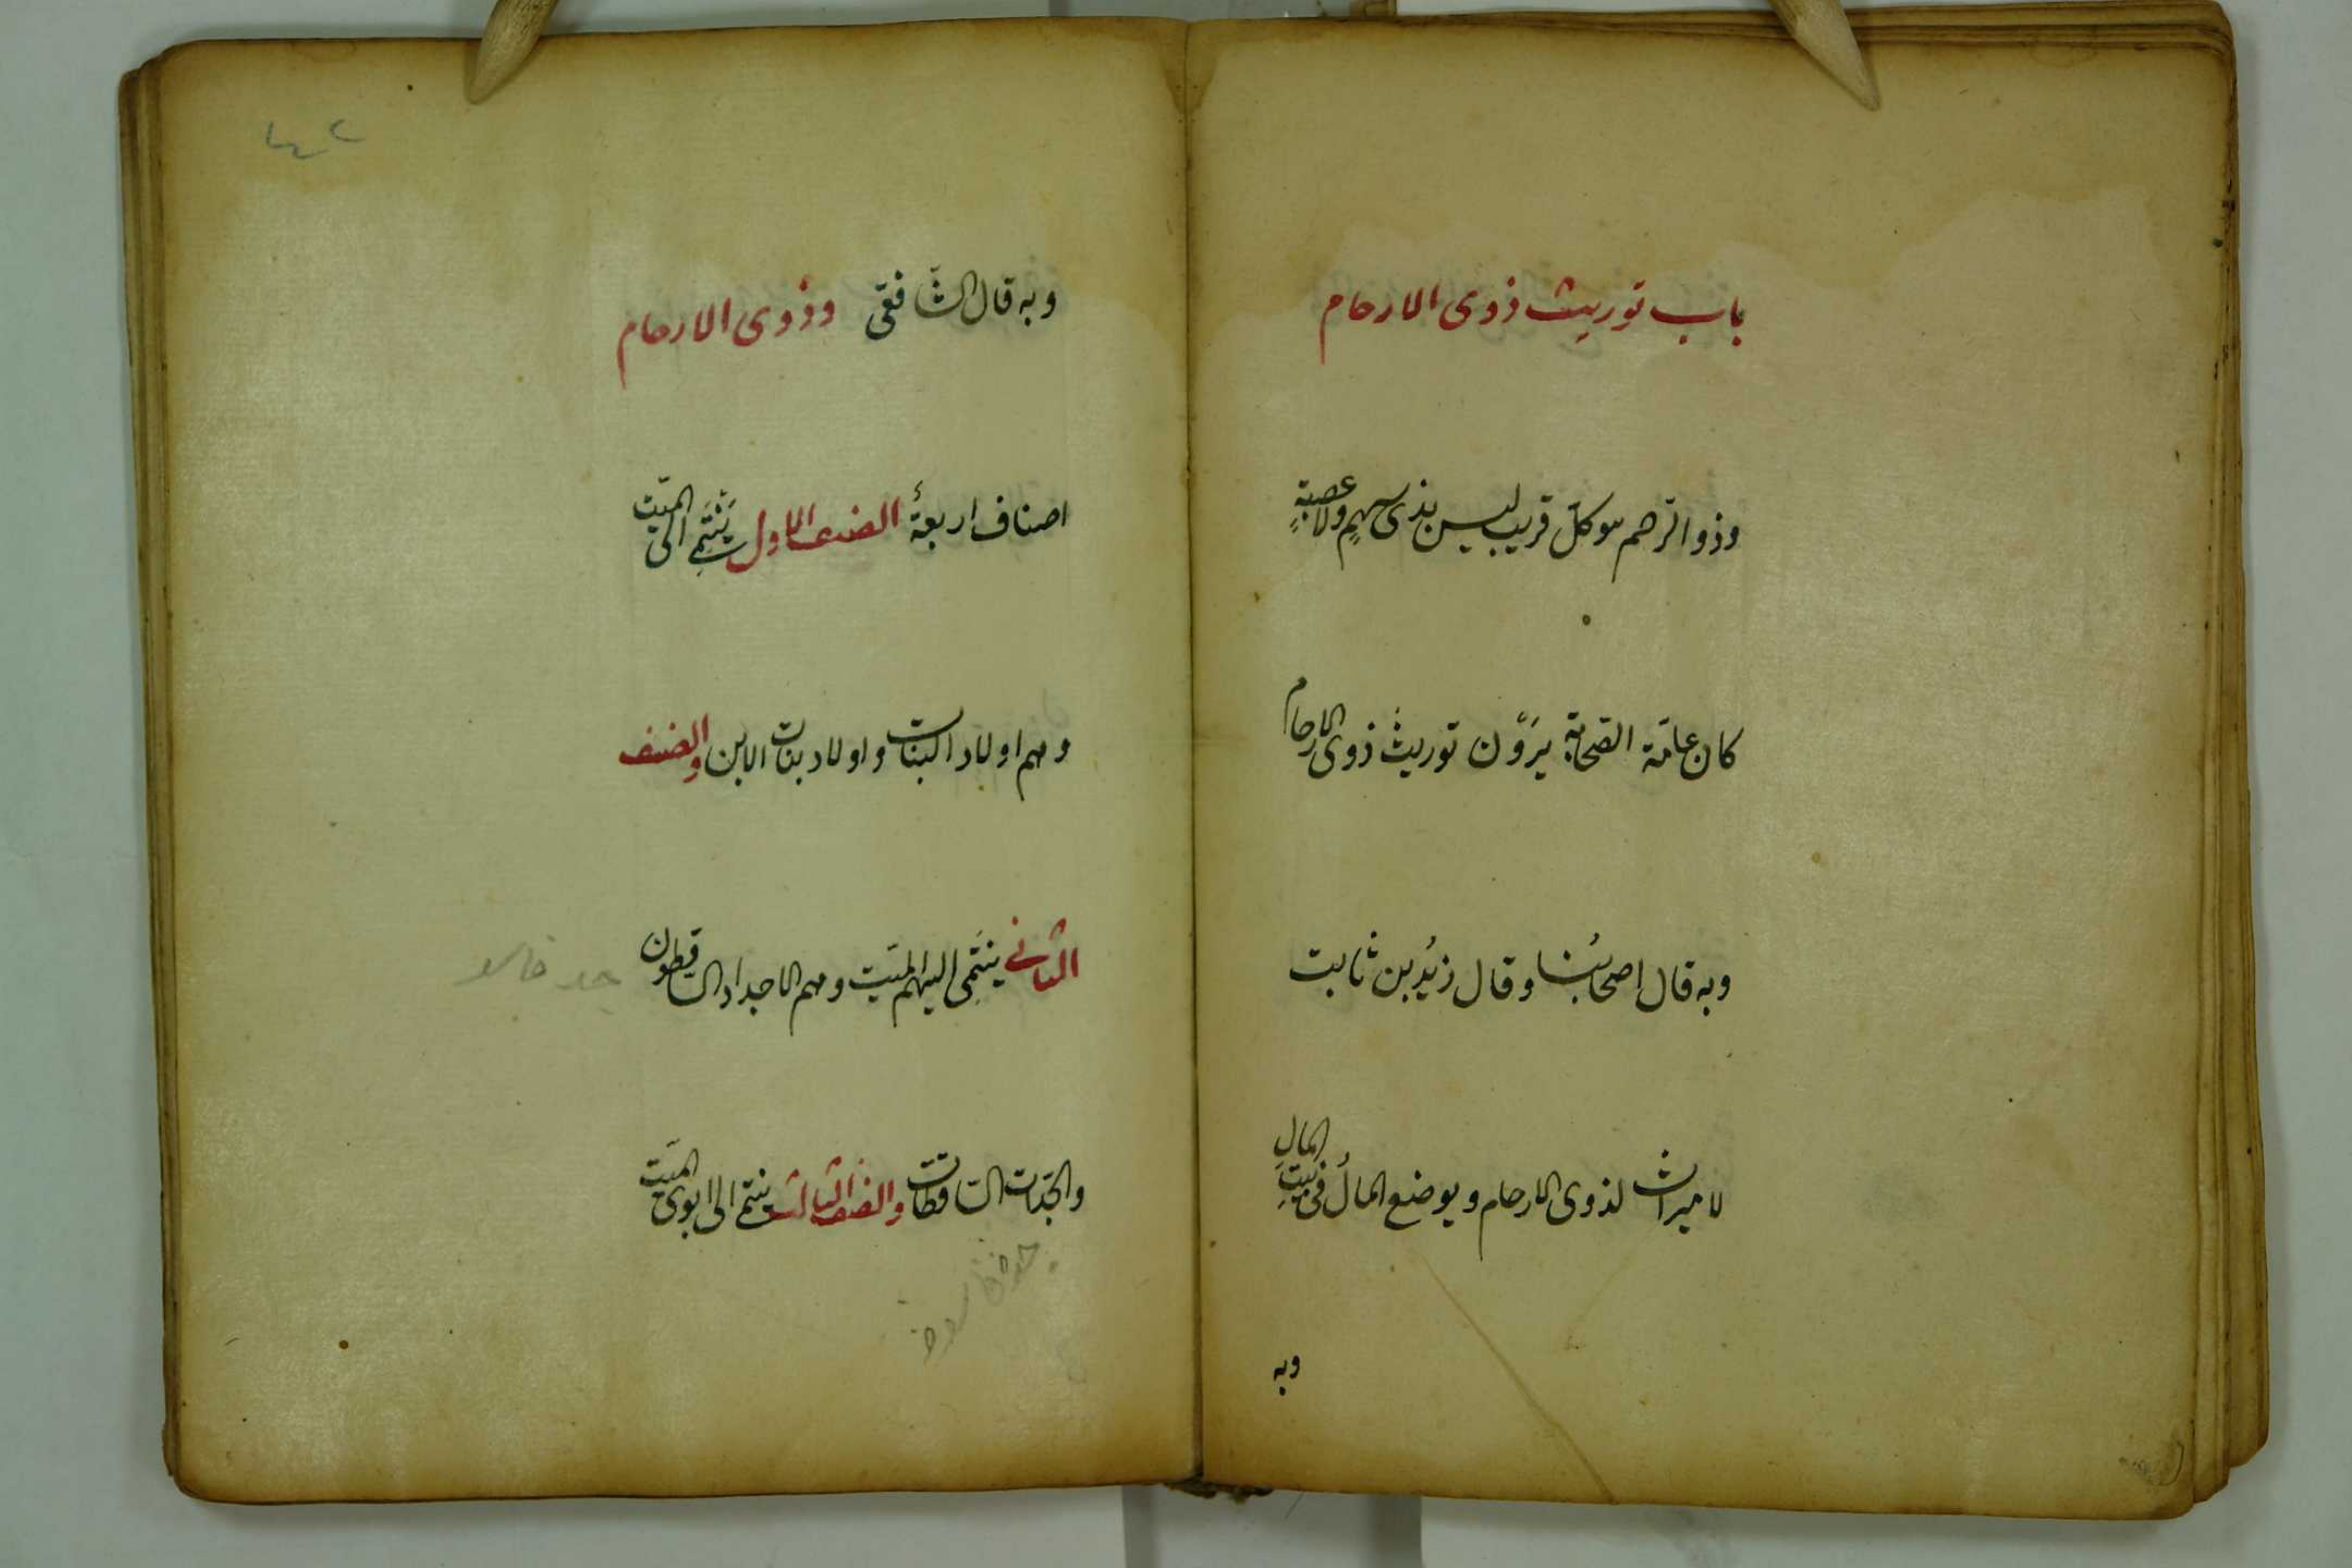 باب توريث ذوى الارحام
وذو الرّحم هو كلّ قريب ليس بذى سهمٍ ولا عصبةٍ
كان عامّة الصّحابة يرَوْن توريثَ ذوى الارحام
وبه قال اصحابُنا وقال زيْد بن ثابت
لا ميراث لذوى الارحام ويوضع المالُ فى بيتِ المالِ
وبه
وبه قال الشّافعى وذوى الارحام
اصناف اربعةٌ الصنف الاول يَنْتَمِى الى الميّت
وهم اولاد البنات واولاد بنات الابن والصنف
الثانى ينتَمِى اليهم الميّت وهم الاجداد الساقطون
جد فاسد
والجدّات الساقطات والصنف الثالث ينتمى الى ابوى الميّت